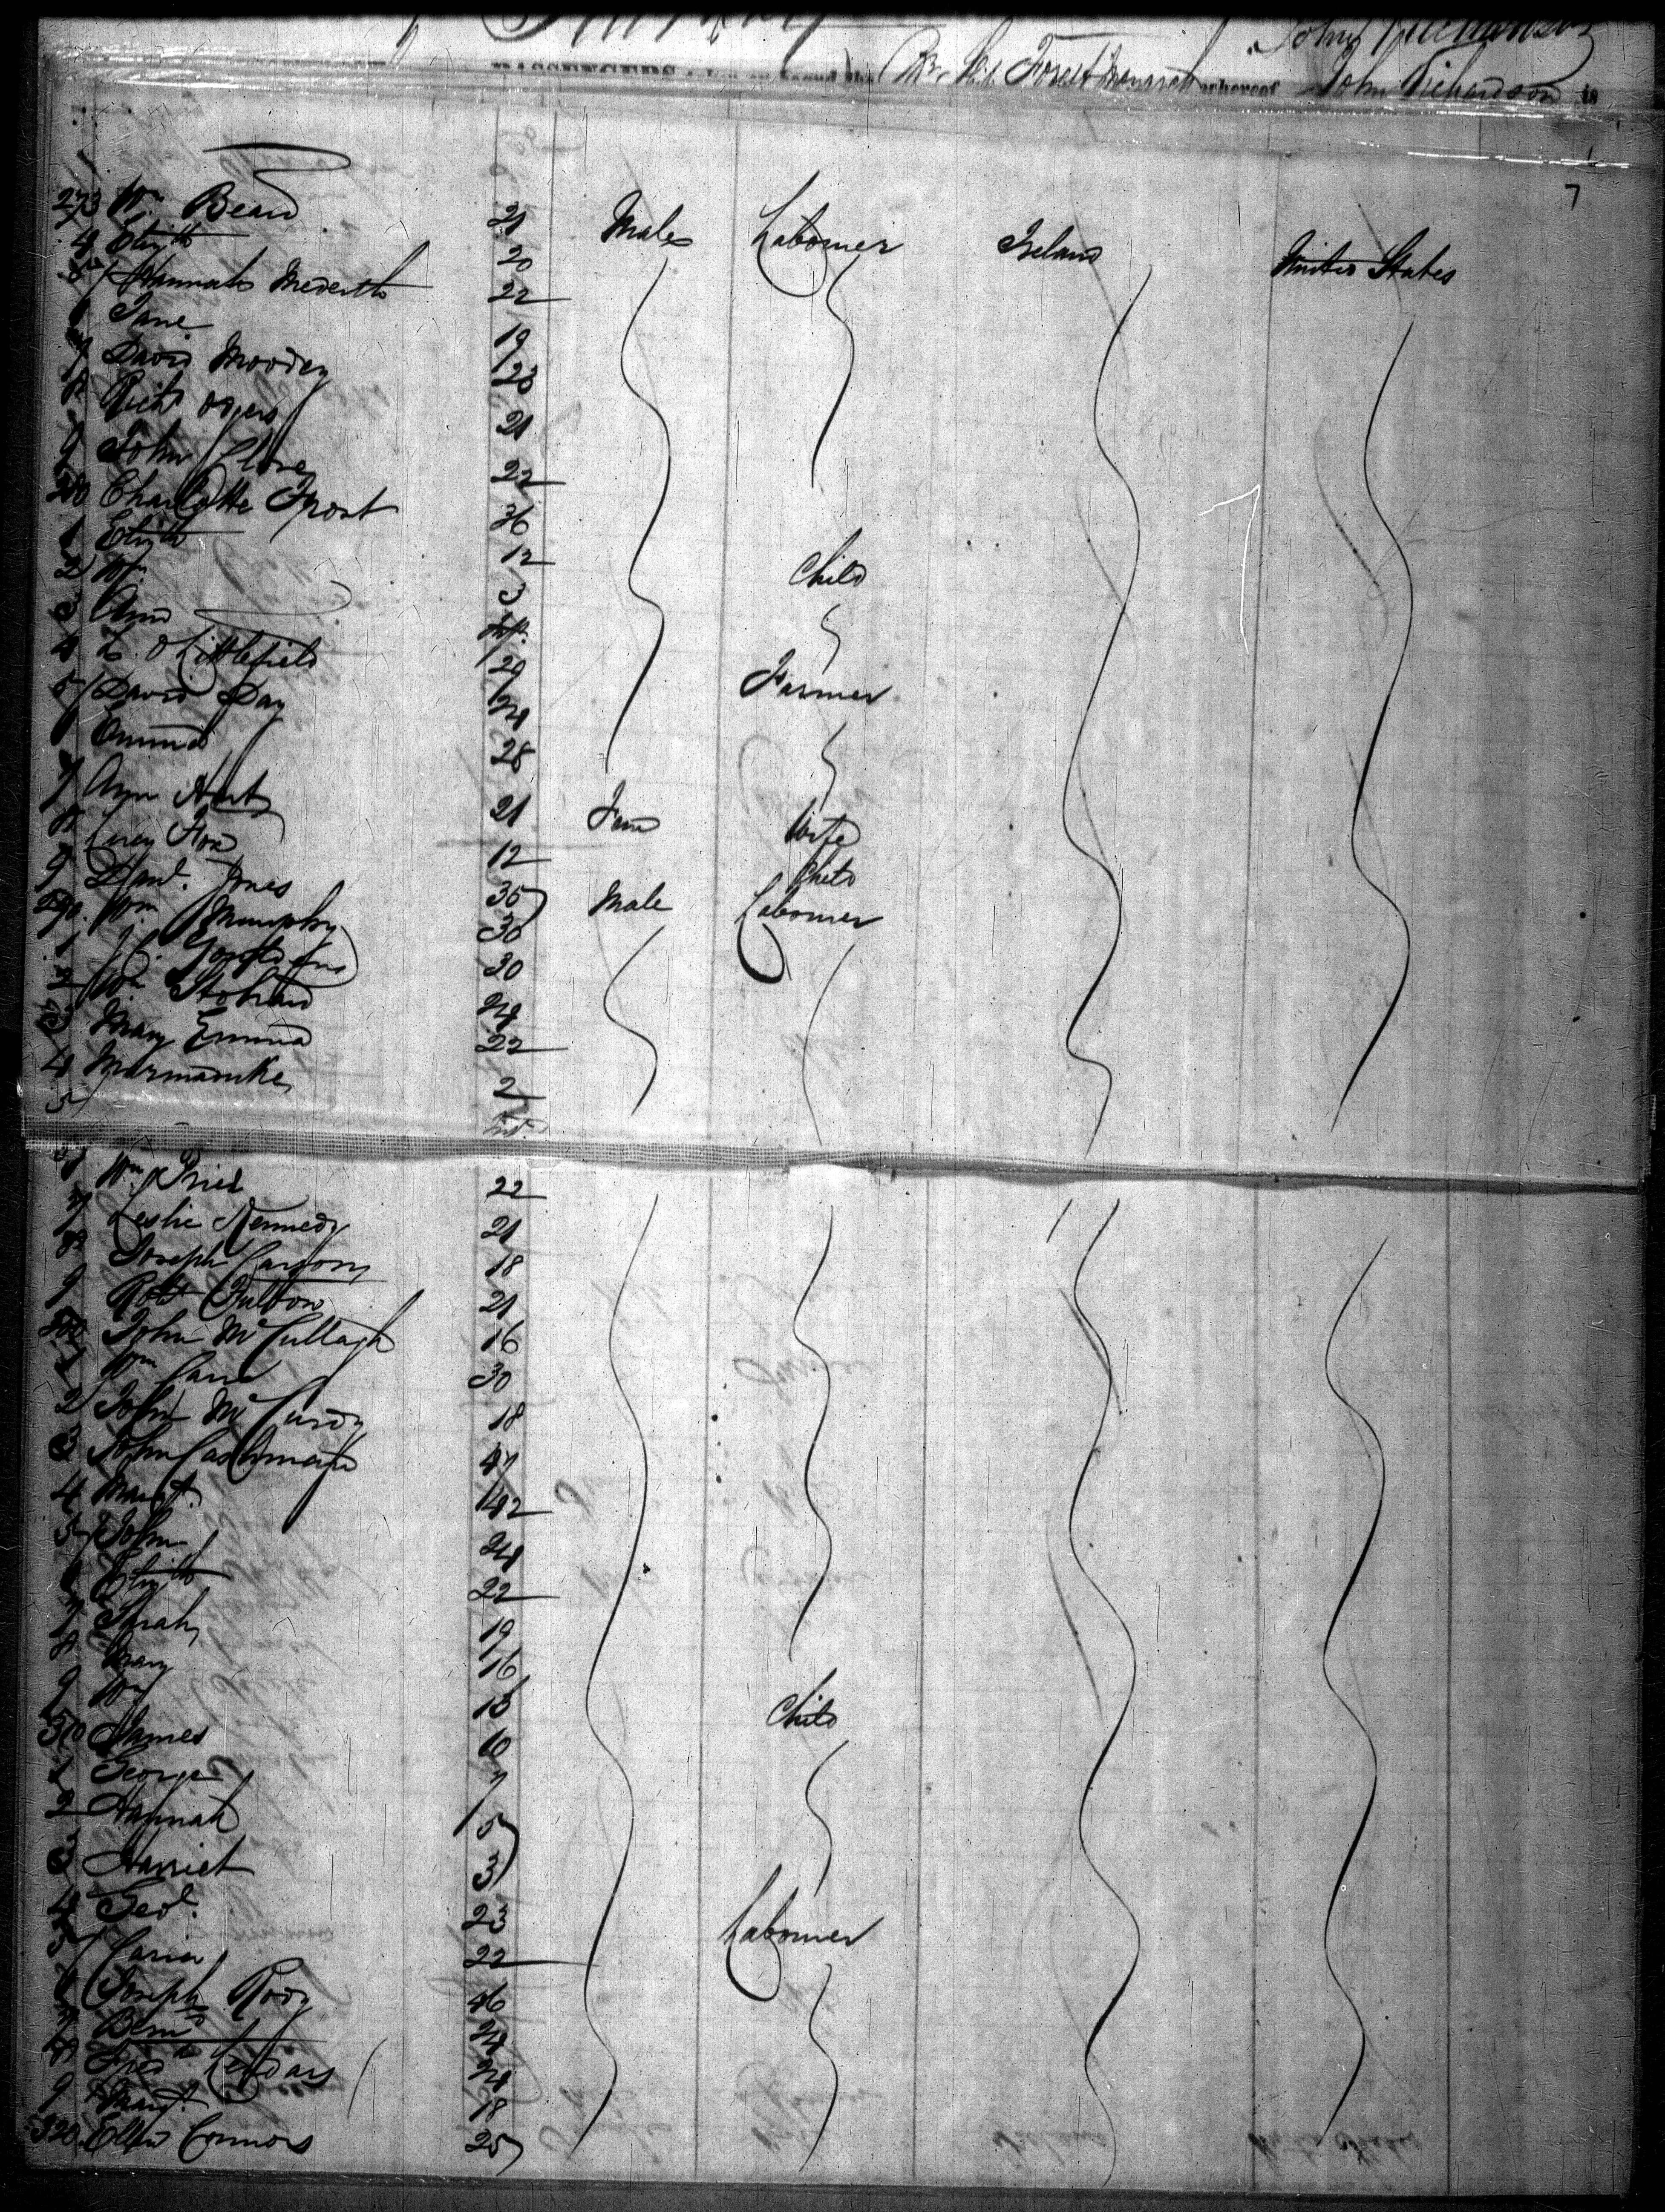 John Richardson
PASSENGERS taken on board the Br. Ship Forest Monarch whereof John Richardson is
7
273 Wm Beard 21 Males Labourer Ireland United States
4 Elizth 20
5 Hannah Mederith 22
6 Jane 19
7 David Moodey 23
8 Richd 21
9 John 22
280 Charlotte Frost 36
1 Elizth 12 Child
2 Wm 3
3 Ann Inft.
4 L. O Littlefield 29 Farmer
5 David Day 24
6 28
7 Ann Hart 21 Fem Wife
8 Fox 12 Child
9 Danl. Jones 35 Male Labourer
290. Wm Murphy 30
1 30
2 Wm Stobard 24
3 Mary Emma 22
4 Marmaduke 2
5 Inf.
6 Wm Price 22
7 Leslie Kennedy 21
8 Joseph Carson 18
9 Robt Fulton 21
300 John McCullagh 16
1 Wm Cane 30
2 John McCurdy 18
3 John 47
4 Margt. 42
5 John 24
6 Elizth 22
7 Sarah 19
8 Mary 16
9 Wm 13 Child
310 James 10
1 George 7
2 Hannah 5
3 Harriet 3
4 Geo. 23 Labourer
5 22
6 Joseph Rody 46
7 24
8 24
9 Margt. 18
320 Ellen Connors 25